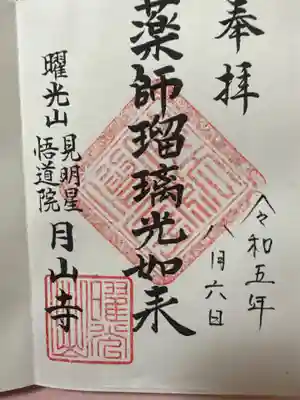 奉拝
令和五年
八月六日
薬師瑠璃光如来
曜光山
見明星
悟道院
月山寺
曜光山